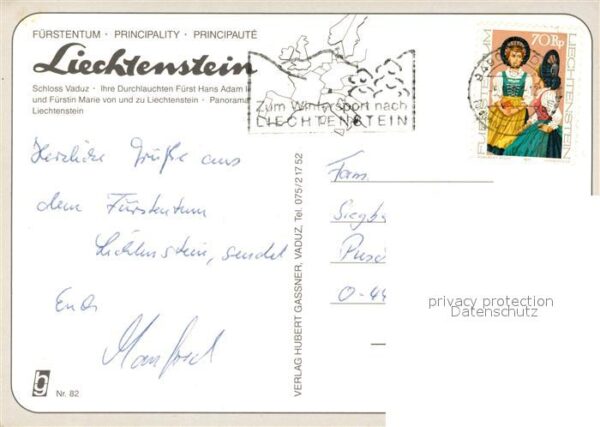 FÜRSTENTUM · PRINCIPALITY · PRINCIPAUTÉ
Liechtenstein
Schloss Vaduz · Ihre Durchlauchten Fürst Hans Adam II
und Fürstin Marie von und zu Liechtenstein · Panorama
Liechtenstein
Zum Wintersport nach
LIECHTENSTEIN
70 Rp
FÜRSTENTUM
LIECHTENSTEIN
Herzliche Grüße aus
dem Fürstentum
Lichtenstein, sendet
Euch
Manfred
VERLAG HUBERT GASSNER, VADUZ, Tel. 075/2 17 52
Fam.
Siegb
O-44
privacy protection
Datenschutz
Nr. 82